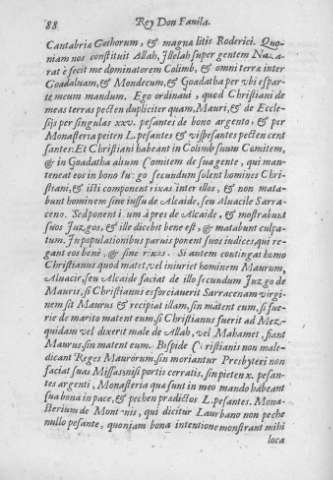 88 Rey Don Favila.
Cantabria Gothorum, & magna litis Roderici. Quo-
niam nos constituit Allah, Illelah super gentem Naza-
rat è fecit me dominatorem Colimb, & omni terræ inter
Goadaluam, & Mondecum, & Goadatha per vbi espar-
te meum mandum. Ego ordinaui, quod Christiani de
meas terras pecten dupliciter quam Mauri, & de Eccle-
sijs per singulas xxv. pesantes de bono argento, & per
Monasteria peiten L. pesantes & vispesantes pecten cent
santes: Et Christiani habeant in Colimb suum Comitem,
& in Goadatha alium Comitem de sua gente, qui man-
teneat eos in bono iuzgo secundum solent homines Chri-
stiani, & isti component rixas inter illos, & non mata-
bunt hominem sine iussu de Alcaide, seu Aluacile Sarra-
ceno. Sed ponent illum à pres de Alcaide, & mostrabunt
suos Juzgos, & ille dicebit bene est, & matabunt culpa-
tum. In populationibus paruis ponent suos iudices, qui re-
gant eos benè, & sine rixas. Si autem contingat homo
Christianus quod matet, vel iniuriet hominem Maurum,
Aluacir, seu Alcaide faciat de illo secundum Juzgo de
Mauris, si Christianus esforciauerit Sarracenam virgi-
nem sit Maurus & recipiat illam, sin matent eum, si fue-
rit de marito matent eum, si Christianus fuerit ad Mez-
quidam vel dixerit male de Allah, vel Mahamet, fiant
Maurus, sin matent eum. Bispide Christianis non male-
dicant Reges Maurorum, sin moriantur Presbyteri non
faciat suas Missas, nisi portis cerratis, sin pieten x. pesan-
tes argenti, Monasteria quæ sunt in meo mando habeant
sua bona in pace, & pechen prædictos L. pesantes. Mona-
sterium de Montanis, qui dicitur Laurbano non peche
nullo pesante, quoniam bona intentione monstrant mihi
loca